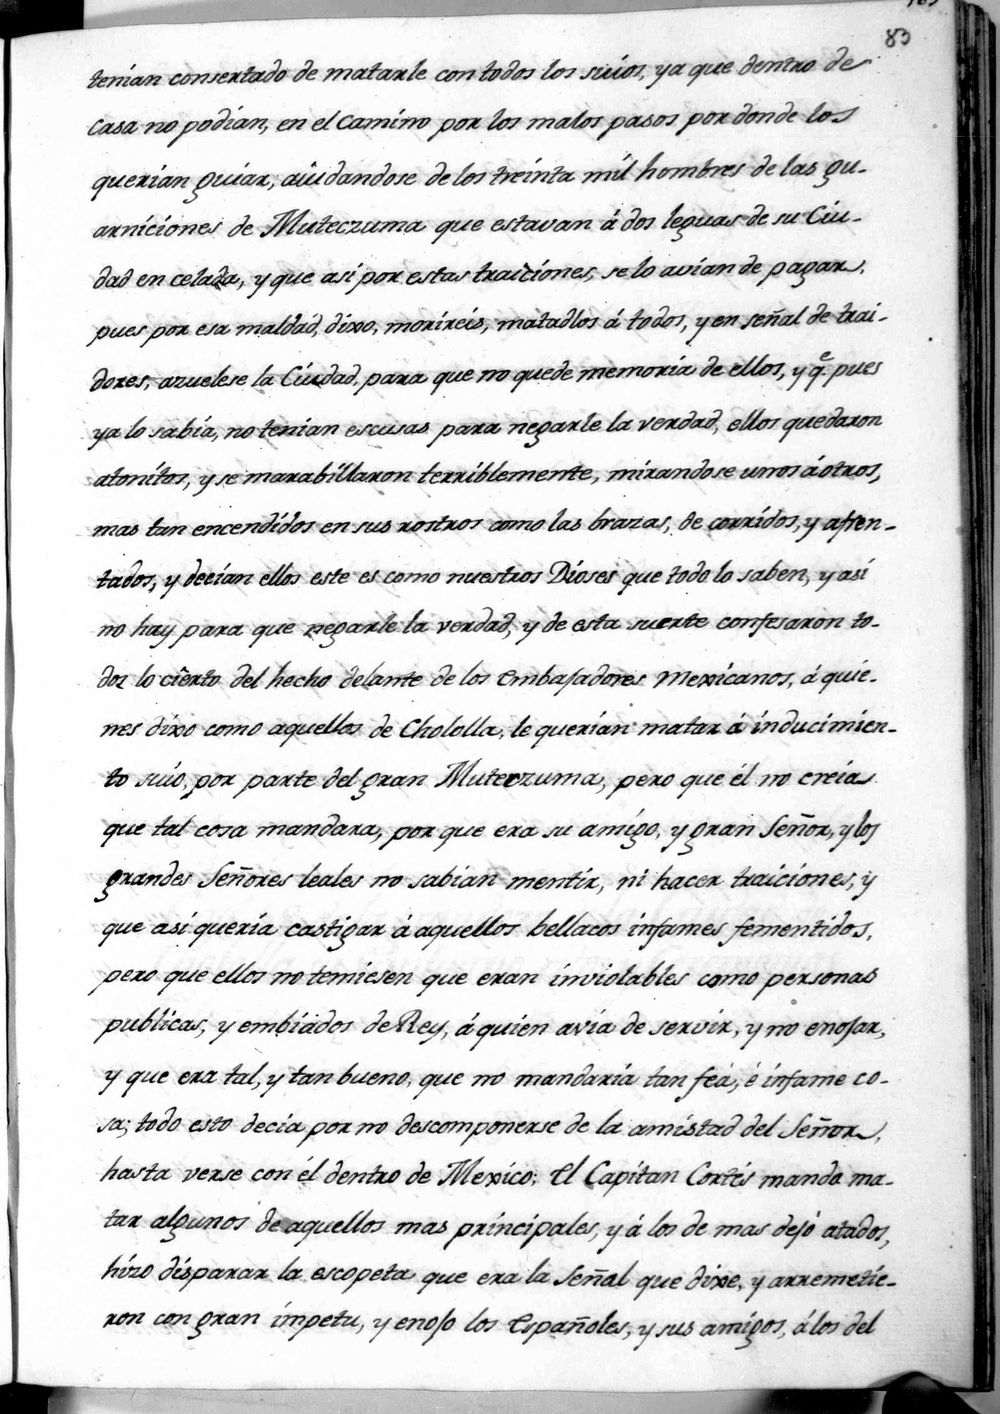 83
tenian consertado de matarle con todos los suios, ya que dentro de
casa no podian, en el camino por los malos pasos por donde los
querian guiar, aiudandose de los treinta mil hombres de las gu-
arniciones de Muteczuma que estavan á dos leguas de su Ciu-
dad en celada, y que asi por estas traiciones, se lo avian de pagar,
pues por esa maldad, dixo, morireis, matadlos á todos, y en señal de trai-
dores, azuelese la Ciudad, para que no quede memoria de ellos, y qe pues
ya lo sabia, no tenian escusas para negarle la verdad, ellos quedaron
atonitos, y se marabillaron terriblemente, mirandose unos á otros,
mas tan encendidos en sus rostros como las brazas, de corridos, y afren-
tados, y decian ellos este es como nuestros Dioses que todo lo saben, y asi
no hay para que negarle la verdad, y de esta suerte confesaron to-
dos lo cierto del hecho delante de los Embajadores Mexicanos, á quie-
nes dixo como aquellos de Chololla, le querian matar á inducimien-
to suio, por parte del gran Muteczuma, pero que él no creia
que tal cosa mandara, por que era su amigo, y gran Señor, y los
grandes Señores leales no sabian mentir, ni hacer traiciones, y
que asi queria castigar á aquellos bellacos infames fementidos,
pero que ellos no temiesen que eran inviolables como personas
publicas, y embiados de Rey, á quien avia de servir, y no enojar,
y que era tal, y tan bueno, que no mandaria tan fea, é infame co-
sa; todo esto decia por no descomponerse de la amistad del Señor,
hasta verse con él dentro de Mexico; El Capitan Cortés manda ma-
tar algunos de aquellos mas principales, y á los de mas dejó atados,
hizo disparar la escopeta que era la Señal que dixe, y arremetie-
ron con gran impetu, y enojo los Españoles, y sus amigos, á los del